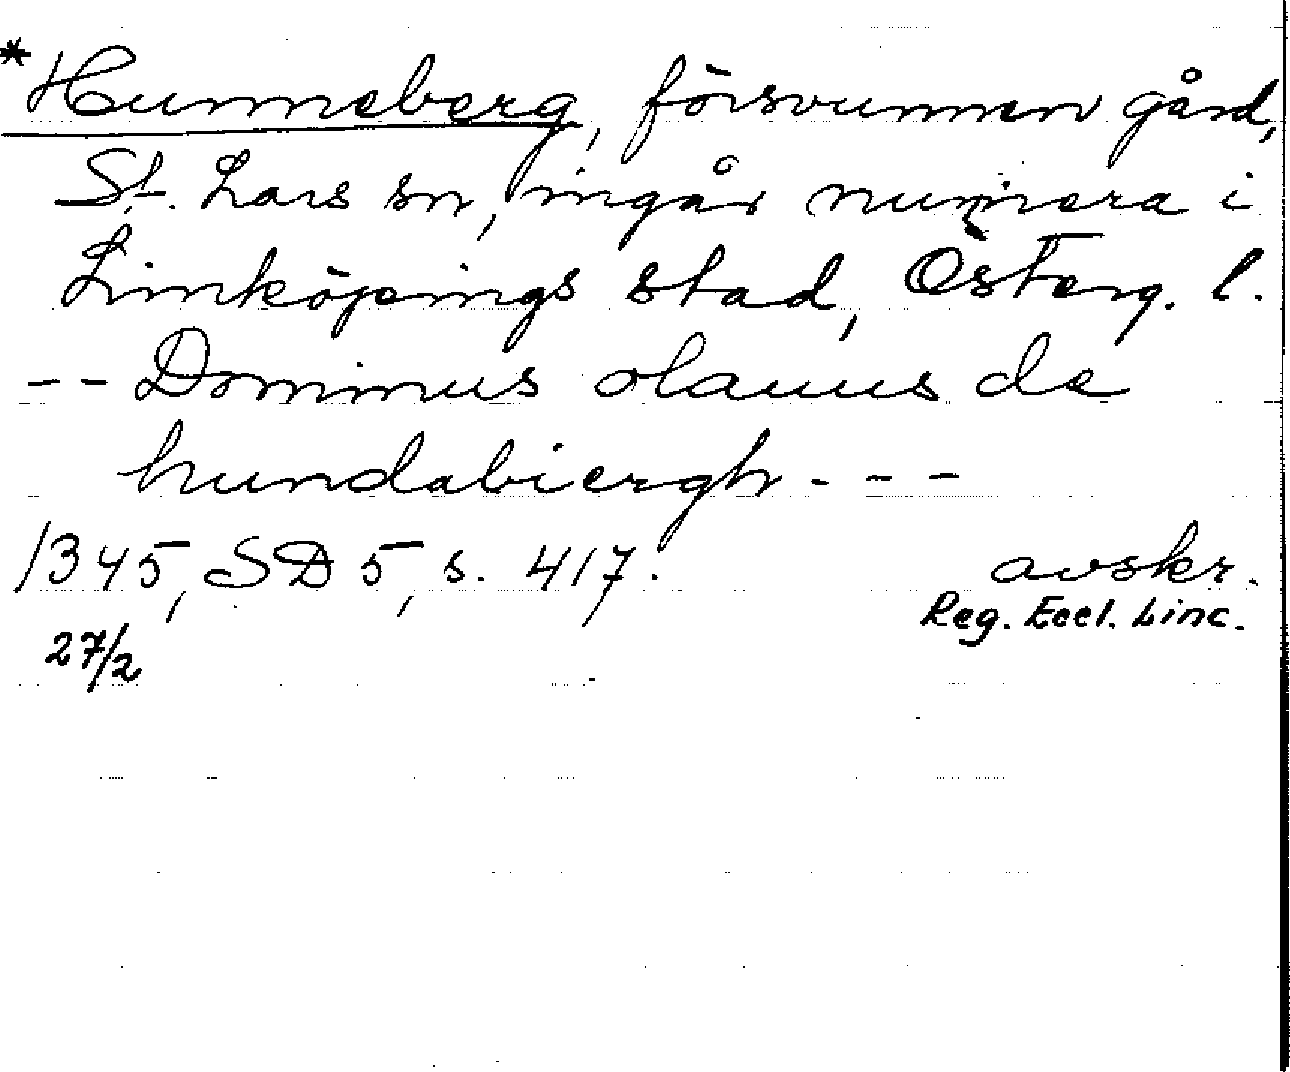 *Hunneberg, försvunnen gård,
St. Lars sn, ingår numera i
Linköpings stad, Österg. l.
-- Dominus olauus de
hundabiergh - - -
1345, SD 5, s. 417. avskr.
27/2 Reg. Eccl. Linc.